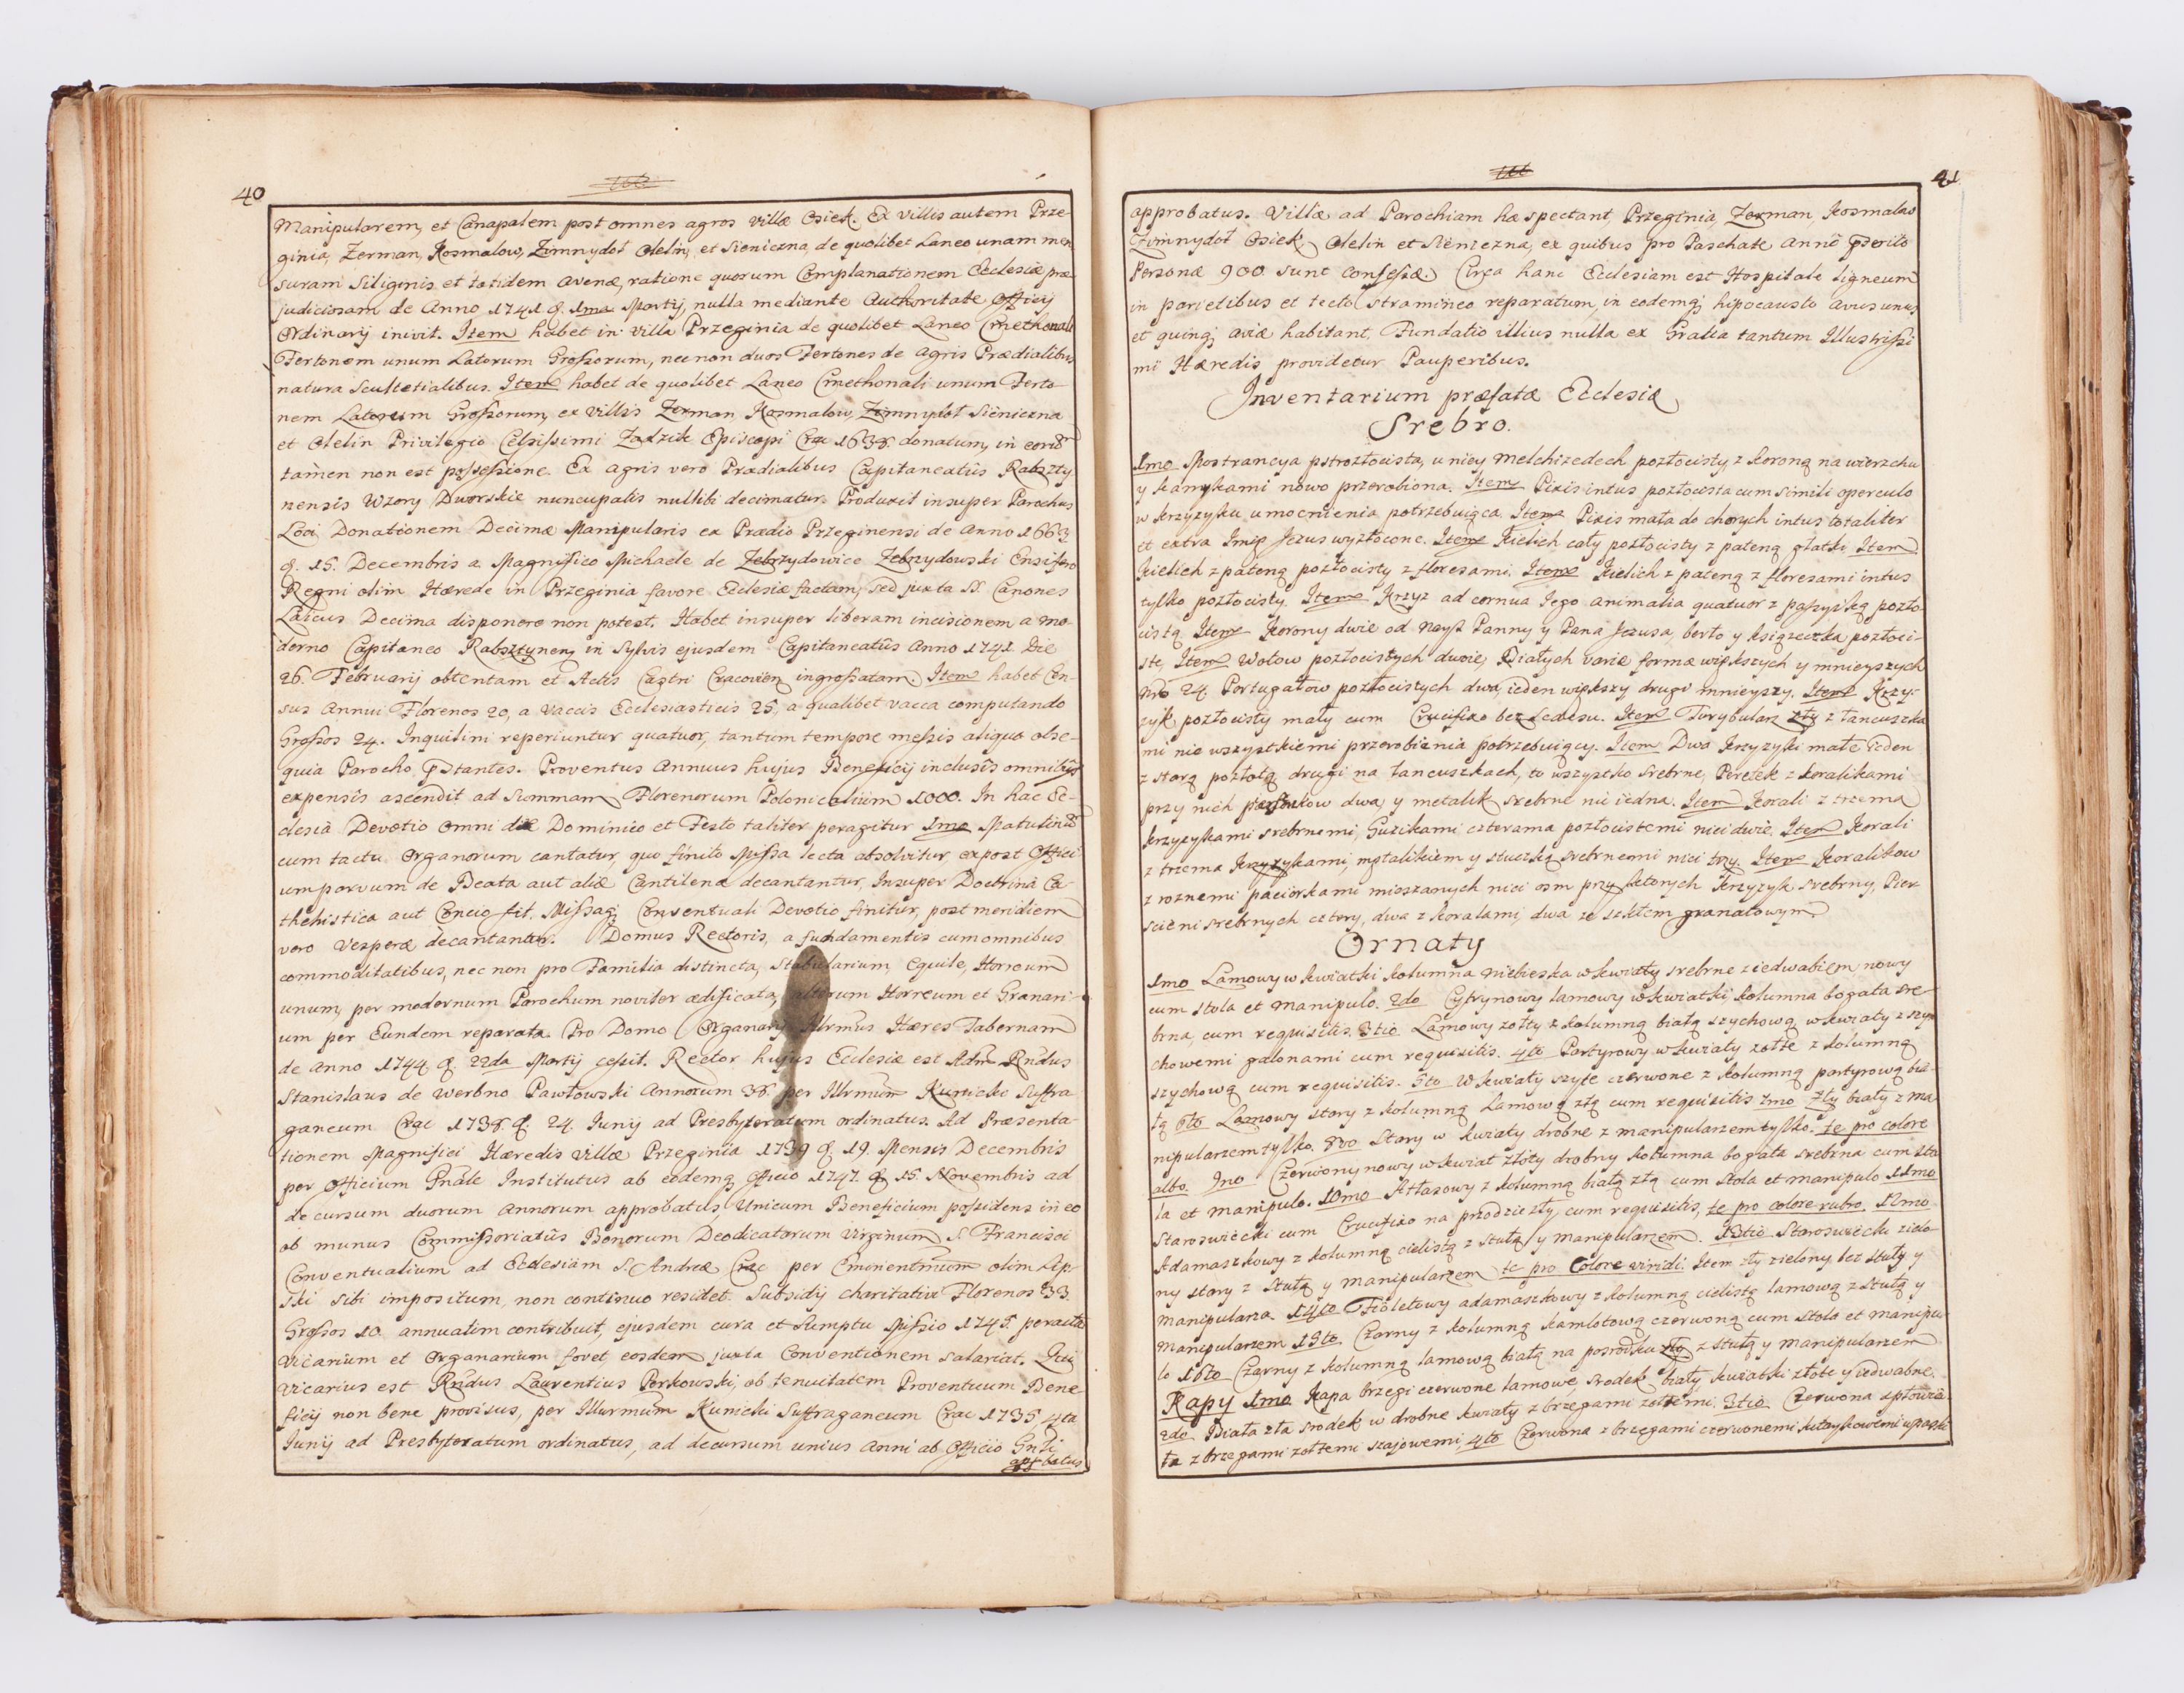 40
Manipularem, et Canapalem post omnes agros villæ Osiek. Ex villis autem Prze-
ginia, Zerman, Kosmalow, Zimnydoł Olelin, et Sieniczna, de quolibet Laneo unam men
suram Siliginis, et totidem avenæ, ratione quorum Complanationem Ecclesiæ præ
judiciosam de Anno 1741 d. 1ma Martij, nulla mediante Authoritate Officij
Ordinarij inivit. Item habet in villa Przeginia de quolibet Laneo Cmethonali
Fertonem unum Latorum Grossorum, nec non duos Fertones de agris Prædialibus
natura Scultetialibus. Item habet de quolibet Laneo Cmethonali unum Ferto-
nem Latorum Grossorum, ex villis Zerman Kosmalow, Zimnydoł Sieniczna
et Olelin Privilegio Celsissimi Zadzik Episcopi Crac 1638. donatum, in eorūd
tamen non est possessione. Ex agris vero Prædialibus Capitaneatûs Rabszty
nensis Wzory Dworskie nuncupatis nullibi decimatur. Produxit insuper Parochus
Loci Donationem Decimæ Manipularis ex Prædio Przeginensi de Anno 1663
d. 15. Decembris a Magnifico Michaele de Zebrzydowice Zebrzydowski Ensifero
Regni olim Hærede in Przeginia favore Ecclesiæ factam, sed juxta SS. Canones
Laicus Decima disponere non potest. Habet insuper liberam incisionem a mo-
derno Capitaneo Rabsztynen, in Sylvis ejusdem Capitaneatûs Anno 1741. Die
26. Februarij obtentam et Actis Castri Cracovien ingrossatam. Item habet Cen-
sus Annui Florenos 20, a vaccis Ecclesiasticis 25, a qualibet vacca computando
Grossos 24. Inquilini reperiuntur quatuor, tantum tempore messis aliqua obse-
quia Parocho pstantes. Proventus Annuus hujus Beneficij inclusis omnibus
expensis ascendit ad Summam Florenorum Polonicalium 1000. In hac Ec-
clesia Devotio omni die Dominico et Festo taliter peragitur 1mo Matutinū
cum tactu Organorum cantatur, quo finito Missa lecta absolvitur, expost Offici
um parvum de Beata aut aliæ Cantilenæ decantantur, Insuper Doctrina Ca-
thehistica aut Concio fit, Missaq; Conventuali Devotio finitur, post meridiem
vero Vesperæ decantantur. Domus Rectoris, a fundamentis cum omnibus
commoditatibus, nec non pro Familia distincta, Stabularium, Equile, Horreum
unum, per modernum Parochum noviter ædificata, alterum Horreum et Granari-
um per Eundem reparata. Pro Domo Organarij Illrmus Hæres Tabernam
de Anno 1744 d. 22da Martij cessit. Rector hujus Ecclesiæ est Adm Rndus
Stanislaus de Werbno Pawłowski Annorum 38. per Illrmum Kunicki Suffra-
ganeum Crac 1738. d. 24. Junij ad Presbyteratum ordinatus. Ad Præsenta-
tionem Magnifici Hæredis villæ Przeginia 1739 d. 19. Mensis Decembris
per Officium Gnāle Institutus ab eodemq; Officio 1747. d 15. Novembris ad
decursum duorum Annorum approbatus, Unicum Beneficium possidens in eo
ob munus Commissoriatûs Bonorum Deodicatorum Virginum S. Francisci
Conventualium ad Ecclesiam S. Andreæ Crac per Eminentmum olim Lip-
ski sibi impositum, non continuo residet. Subsidij charitativi Florenos 33
Grossos 10 annuatim contribuit, ejusdem cura et Sumptu Missio 1745 peracta
Vicarium et Organarium fovet, eosdem juxta Conventionem salariat. Qui
Vicarius est Rndus Laurentius Porkowski, ob tenuitatem Proventuum Bene
ficij non bene provisus, per Illurmum Kunicki Suffraganeum Crac 1735 4ta
Junij ad Presbyteratum ordinatus, ad decursum unius Anni ab Officio Gnāli
apprbatus
41
approbatus. Villæ ad Parochiam hæ spectant Przeginia, Zerman, Kosmalow
Zimnydoł Osiek Olelin et Sieniczna, ex quibus pro Paschate Anno pterito
Personæ 900. sunt confessæ. Circa hanc Ecclesiam est Hospitale ligneum
in parietibus et tecto stramineo reparatum, in eodemq; hipocausto avus unus,
et quinq; aviæ habitant, Fundatio illius nulla ex Gratia tantum Illustrissi
mi Hæredis providetur Pauperibus.
Inventarium præfatæ Ecclesiæ
Srebro.
1mo Mostrancya pstrozłocista, u niey Melchizedech pozłocisty, z koroną na wierzchu
y kamykami nowo przerobiona. Item Pixis intus pozłocista cum simili operculo
w krzyzyku umocnienia potrzebuiąca. Item Pixis mała do chorych intus totaliter
et extra Imię Jezus wyzłocone. Item Kielich cały pozłocisty z pateną głatki Item
Kielich z pateną pozłocisty z floresami. Item Kielich z pateną z floresami intus
tylko pozłocisty. Item Krzyz ad cornua Iego animalia quatuor z passyiką pozło-
cistą Item Korony dwie od Nayś Panny y Pana Jezusa, berło y ksiązeczka pozłoci-
ste, Item Wotow pozłocistych dwie, Białych variæ formæ większych y mnieyszych
Nro 24. Portugałow pozłocistych dwa, ieden większy drugi mnieyszy. Item Krzy-
zyk pozłocisty mały cum Crucifixo bez Sedesu. Item Turybularz zły z łancuszka
mi nie wszystkiemi przerobienia potrzebuiący. Item Dwa Krzyzyki małe ieden
z starą pozłotą, drugi na łancuszkach, to wszystko srebrne, Perełek z koralikami
przy nich dwa, y metalik srebrne nić iedna. Item Korali z trzema
krzyzykami srebrnemi, Guzikami czterama pozłocistemi nici dwie. Item Korali
z trzema krzyzykami, metalikiem y stuczką srebrnemi nici trzy. Item Koralikow
z roznemi paciorkami mieszanych nici osm przy ktorych krzyzyk srebrny, Pier-
scieni srebrnych cztery, dwa z koralami, dwa ze szkłem granatowym.
Ornaty
1mo Lamowy w kwiatki kolumna niebieska w kwiaty srebrne z iedwabiem nowy
cum stola et manipulo. 2do Cytrynowy lamowy w kwiatki, kolumna bogata sre-
brna, cum requisitis. 3tio Lamowy zołty z kolumną białą szychową, w kwiaty z szy-
chowemi galonami cum requisitis. 4to Partyrowy w kwiaty zołte z kolumną
szychową cum requisitis. 5to W kwiaty szyte czerwone z kolumną partyrową bia-
łą 6to Lamowy stary z kolumną Lamową złą cum requisitis 7mo Zły biały z ma-
nipularzem tylko. 8vo Stary w kwiaty drobne z manipularzem tylko. te pro colore
albo. 9no Czerwony nowy w kwiat złoty drobny kolumna bogata srebrna cum sto
la et manipulo. 10mo Atłasowy z kolumną białą złą cum stola et manipulo 11mo
Staroswiecki cum Crucifixo na przodzie zły cum requisitis, te pro colore rubro. 12mo
Adamaszkowy z kolumną cielistą z stułą y manipularzem. 13tio Staroswiecki zielo-
ny stary z stułą y manipularzem te pro Colore viridi. Item zły zielony bez stuły y
manipularza. 14to Fioletowy adamaszkowy z kolumną cielistą lamową z stułą y
manipularzem 15to Czarny z kolumną kamlotową czerwoną cum stola et manipu-
lo 16to Czarny z kolumną lamową białą na posrodku złą z stułą y manipularzem
Kapy 1mo Kapa brzegi czerwone lamowe, srodek biały, kwiatki złote y iedwabne.
2do Biała zła srodek w drobne kwiaty z brzegami zołtemi. 3tio Czerwona spłowia-
ła z brzegami zołtemi szajowemi, 4to Czerwona z brzegami czerwonemi kitaykowemi